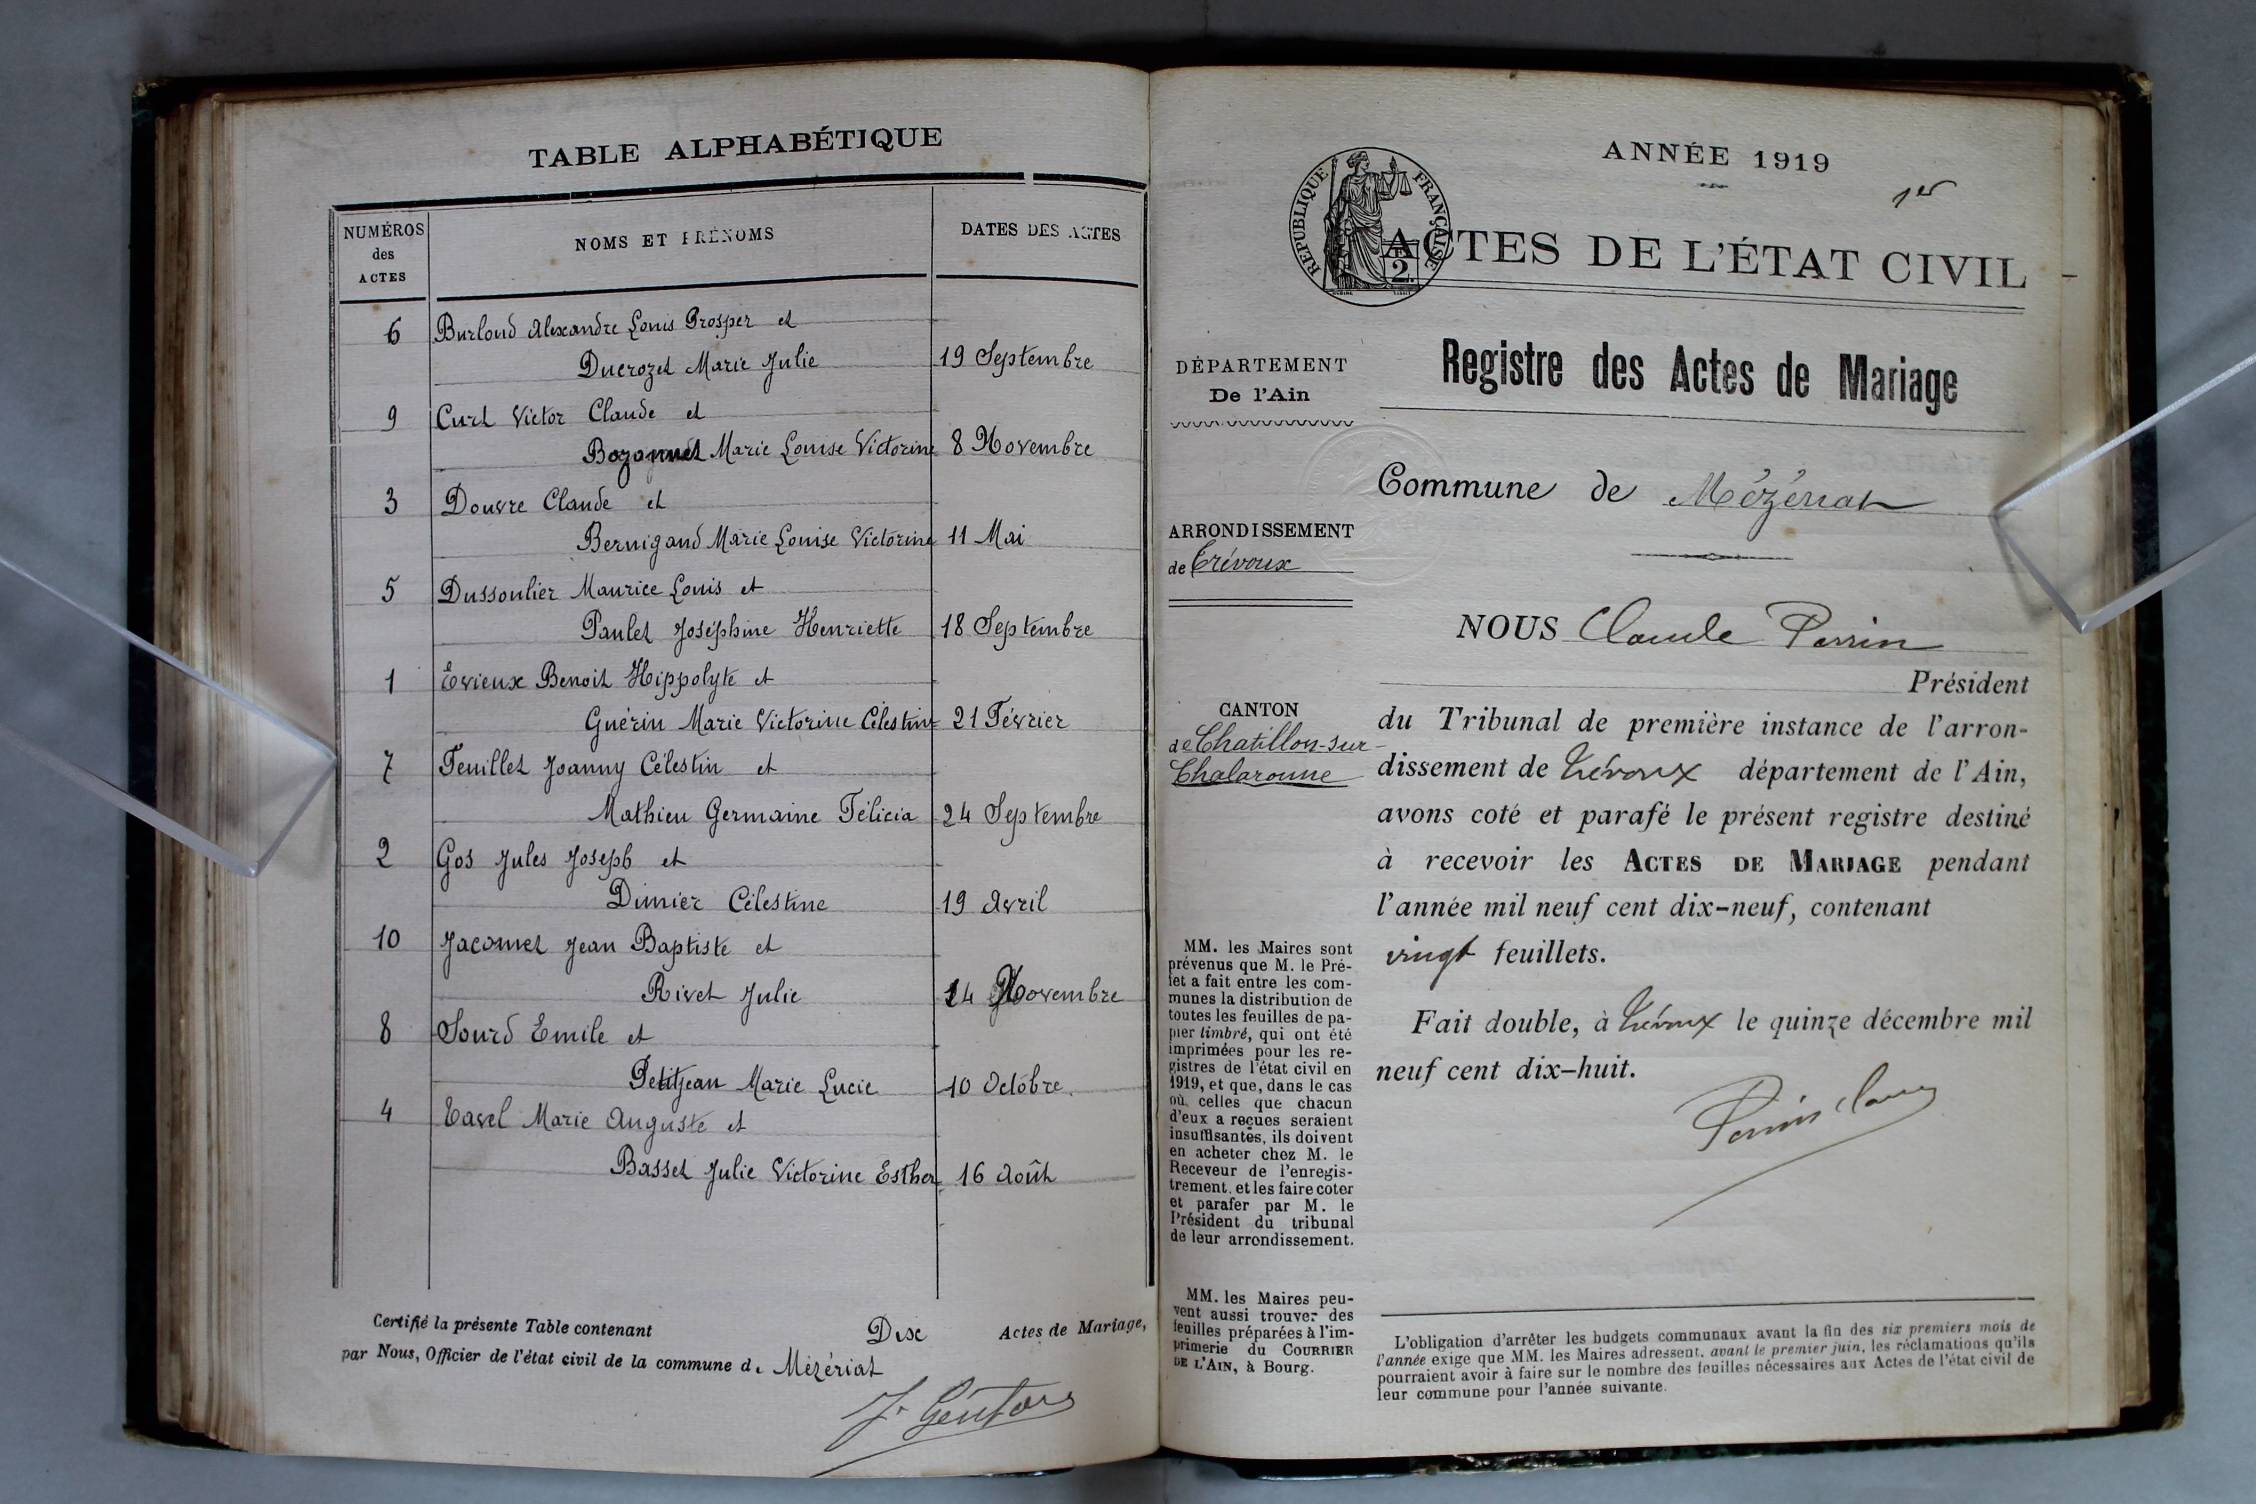 TABLE ALPHABÉTIQUE
NUMÉROS
des
ACTES
NOMS ET PRÉNOMS
DATES DES ACTES
6 Burloud Alexandre Louis Prosper et
Ducrozet Marie Julie 19 Septembre
9 Curt Victor Claude et
Bozonnet Marie Louise Victorine 8 Novembre
3 Douvre Claude et
Bernigaud Marie Louise Victorine 11 Mai
5 Dussoulier Maurice Louis et
Paulet Joséphine Henriette 18 Septembre
1 Evieux Benoit Hippolyte et
Guérin Marie Victorine Célestine 21 Février
7 Feuillet Joanny Célestin et
Mathieu Germaine Félicia 24 Septembre
2 Gos Jules Joseph et
Dimier Célestine 19 Avril
10 Jacomet Jean Baptiste et
Rivet Julie 14 Novembre
8 Sourd Emile et
Petitjean Marie Lucie 10 Octobre
4 Tavel Marie Auguste et
Basset Julie Victorine Esther 16 Août
Certifié la présente Table contenant Dix Actes de Mariage,
par Nous, Officier de l'état civil de la commune de Mézériat
ANNÉE 1919
1er
RÉPUBLIQUE FRANÇAISE
2
ACTES DE L'ÉTAT CIVIL
Registre des Actes de Mariage
DÉPARTEMENT
De l'Ain
ARRONDISSEMENT
de Trévoux
CANTON
de Chatillon-sur-
Chalaronne
MM. les Maires sont
prévenus que M. le Pré-
fet a fait entre les com-
munes la distribution de
toutes les feuilles de pa-
pier timbré, qui ont été
imprimées pour les re-
gistres de l'état civil en
1919, et que, dans le cas
où celles que chacun
d'eux a reçues seraient
insuffisantes, ils doivent
en acheter chez M. le
Receveur de l'enregis-
trement, et les faire coter
et parafer par M. le
Président du tribunal
de leur arrondissement.
MM. les Maires peu-
vent aussi trouver des
feuilles préparées à l'im-
primerie du COURRIER
DE L'AIN, à Bourg.
Commune de Mézériat
NOUS Claude Perrin
Président
du Tribunal de première instance de l'arron-
dissement de Trévoux département de l'Ain,
avons coté et parafé le présent registre destiné
à recevoir les ACTES DE MARIAGE pendant
l'année mil neuf cent dix-neuf, contenant
vingt feuillets.
Fait double, à Trévoux le quinze décembre mil
neuf cent dix-huit.
L'obligation d'arrêter les budgets communaux avant la fin des six premiers mois de
l'année exige que MM. les Maires adressent, avant le premier juin, les réclamations qu'ils
pourraient avoir à faire sur le nombre des feuilles nécessaires aux Actes de l'état civil de
leur commune pour l'année suivante.